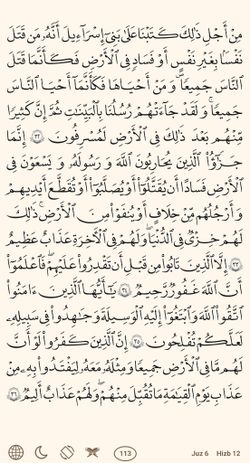 مِنْ أَجْلِ ذَٰلِكَ كَتَبْنَا عَلَىٰ بَنِىٓ إِسْرَٰٓءِيلَ أَنَّهُۥ مَن قَتَلَ
نَفْسًۢا بِغَيْرِ نَفْسٍ أَوْ فَسَادٍ فِى ٱلْأَرْضِ فَكَأَنَّمَا قَتَلَ
ٱلنَّاسَ جَمِيعًا وَمَنْ أَحْيَاهَا فَكَأَنَّمَآ أَحْيَا ٱلنَّاسَ
جَمِيعًا ۚ وَلَقَدْ جَآءَتْهُمْ رُسُلُنَا بِٱلْبَيِّنَٰتِ ثُمَّ إِنَّ كَثِيرًا
مِّنْهُم بَعْدَ ذَٰلِكَ فِى ٱلْأَرْضِ لَمُسْرِفُونَ ٣٢ إِنَّمَا
جَزَٰٓؤُا۟ ٱلَّذِينَ يُحَارِبُونَ ٱللَّهَ وَرَسُولَهُۥ وَيَسْعَوْنَ فِى
ٱلْأَرْضِ فَسَادًا أَن يُقَتَّلُوٓا۟ أَوْ يُصَلَّبُوٓا۟ أَوْ تُقَطَّعَ أَيْدِيهِمْ
وَأَرْجُلُهُم مِّنْ خِلَٰفٍ أَوْ يُنفَوْا۟ مِنَ ٱلْأَرْضِ ۚ ذَٰلِكَ
لَهُمْ خِزْىٌ فِى ٱلدُّنْيَا ۖ وَلَهُمْ فِى ٱلْأَخِرَةِ عَذَابٌ عَظِيمٌ
٣٣ إِلَّا ٱلَّذِينَ تَابُوا۟ مِن قَبْلِ أَن تَقْدِرُوا۟ عَلَيْهِمْ ۖ فَٱعْلَمُوٓا۟
أَنَّ ٱللَّهَ غَفُورٌ رَّحِيمٌ ٣٤ يَٰٓأَيُّهَا ٱلَّذِينَ ءَامَنُوا۟
ٱتَّقُوا۟ ٱللَّهَ وَٱبْتَغُوٓا۟ إِلَيْهِ ٱلْوَسِيلَةَ وَجَٰهِدُوا۟ فِى سَبِيلِهِۦ
لَعَلَّكُمْ تُفْلِحُونَ ٣٥ إِنَّ ٱلَّذِينَ كَفَرُوا۟ لَوْ أَنَّ
لَهُم مَّا فِى ٱلْأَرْضِ جَمِيعًا وَمِثْلَهُۥ مَعَهُۥ لِيَفْتَدُوا۟ بِهِۦ مِنْ
عَذَابِ يَوْمِ ٱلْقِيَٰمَةِ مَا تُقُبِّلَ مِنْهُمْ ۖ وَلَهُمْ عَذَابٌ أَلِيمٌ ٣٦
113 Juz 6 Hizb 12